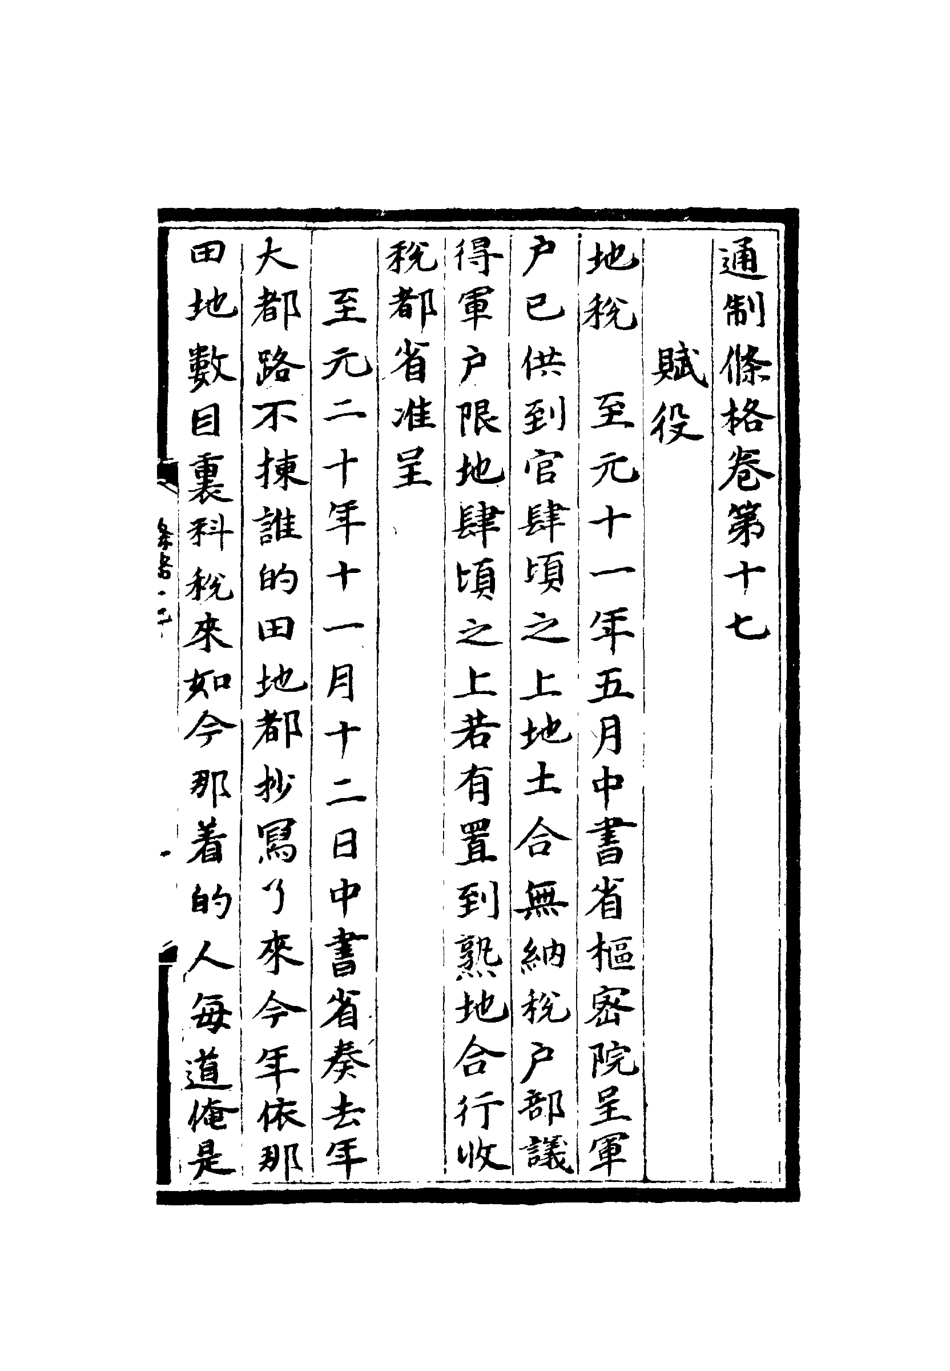 通制條格卷第十七
賦役
地稅　至元十一年五月中書省樞密院呈軍
户已供到官肆頃之上地土合無納稅户部議
得軍户限地肆頃之上若有置到熟地合行收
稅都省准呈
至元二十年十一月十二日中書省奏去年
大都路不揀誰的田地都抄寫了來今年依那
田地數目裏科稅來如今那着的人每道俺是